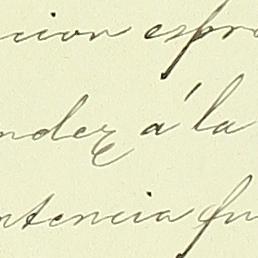 cion espre
nder á la
ntencia fu